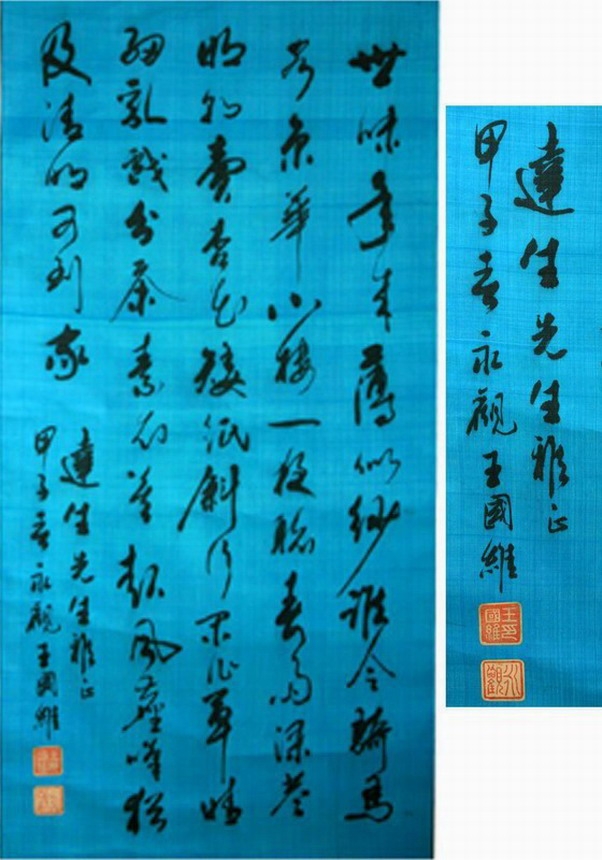 世味年来薄似紗誰令騎馬
客京華小樓一夜聽春雨深巷
明朝賣杏花矮紙斜行閒作草晴
細乳戲分茶素衣莫起風塵嘆猶
及清明可到家
達生先生雅正
甲子春永觀王國維
達生先生雅正
甲子春永觀王國維
王國維印
永觀